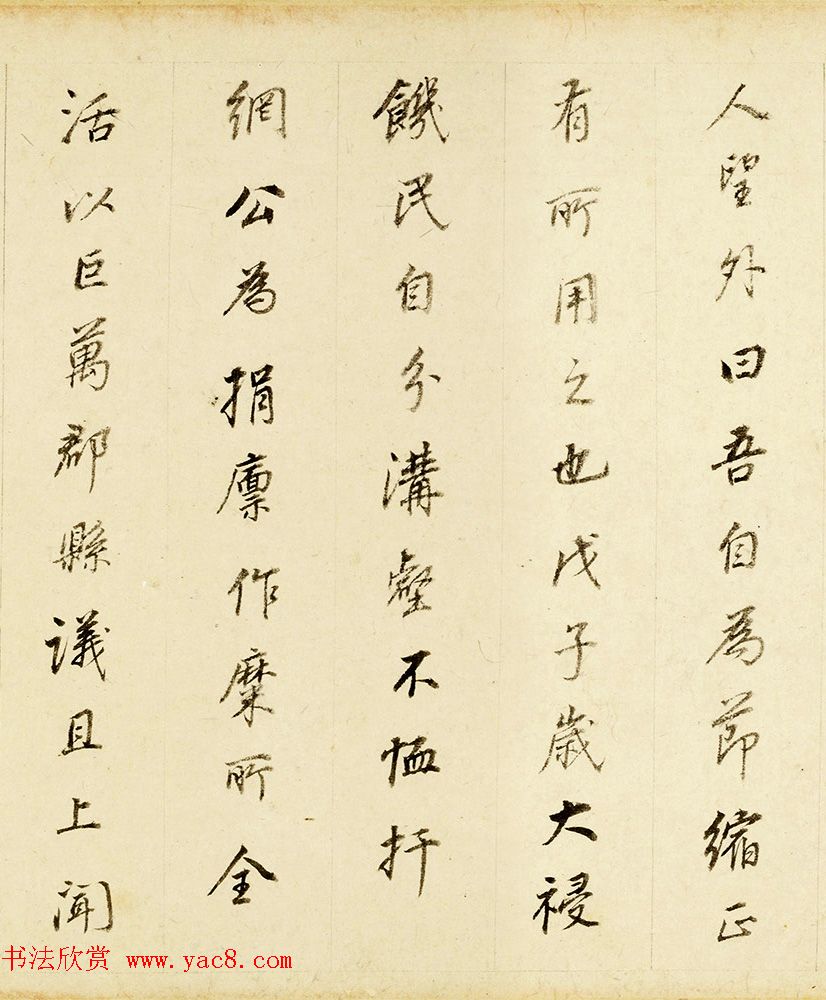 人望外曰吾自為節縮正
有所用之也戊子歲大祲
饑民自分溝壑不恤扞
網公為捐廩作糜所全
活以巨萬郡縣議且上聞
书法欣赏 www.yac8.com